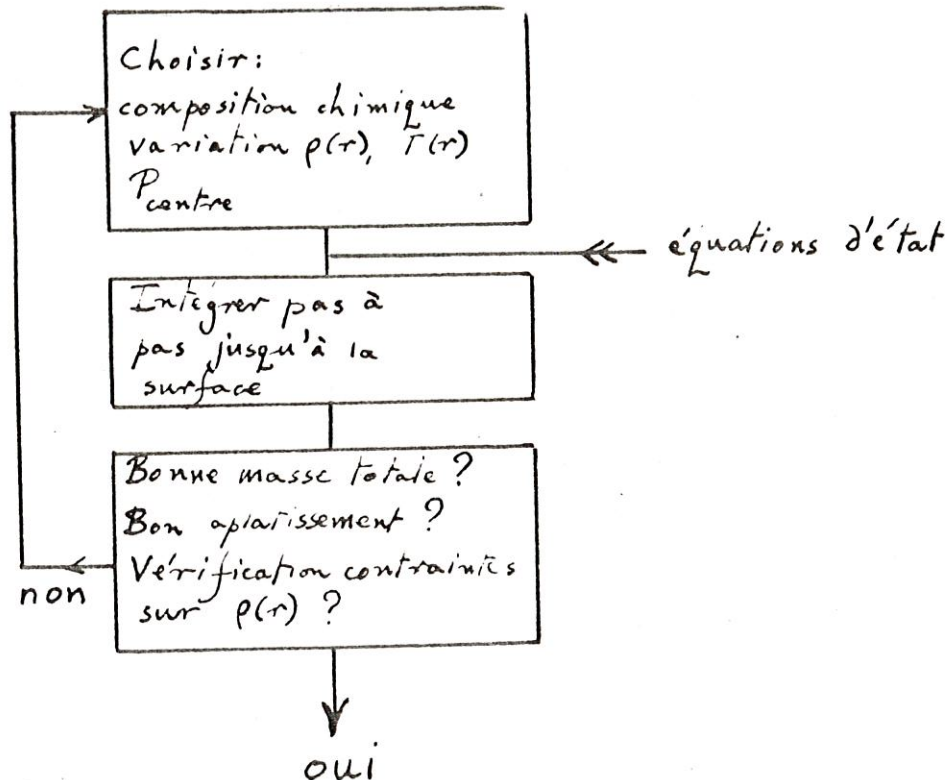 Choisir:
composition chimique
variation ρ(r), T(r)
P centre
équations d'état
Intégrer pas à
pas jusqu'à la
surface
Bonne masse totale ?
Bon aplatissement ?
Vérification contraintes
sur ρ(r) ?
non
oui